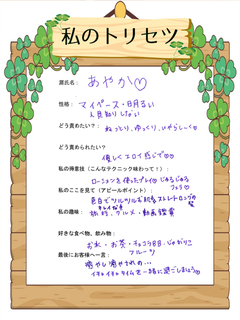 私のトリセツ
源氏名： あやか♡
性格： マイペース・明るい
人見知りしない
どう責めたい？： ねっとり、ゆっくり、いやらしく♡
どう責められたい？
優しくエロイ感じで♡♡
私の得意技（こんなテクニック味わって！）：
ローションを使ったプレイ♡ じゅるじゅる
フェラ♡
私のここを見て（アピールポイント）：
色白でツルツルお肌
ストレートロングの
髪
私の趣味： 旅行、グルメ・動画鑑賞
好きな食べ物、飲み物：
お水・お茶・チョコ じゃがりこ
フルーツ
最後にお客様へ一言：
癒やし癒やされの…
イチャイチャタイムを一緒に過ごしましょう♡